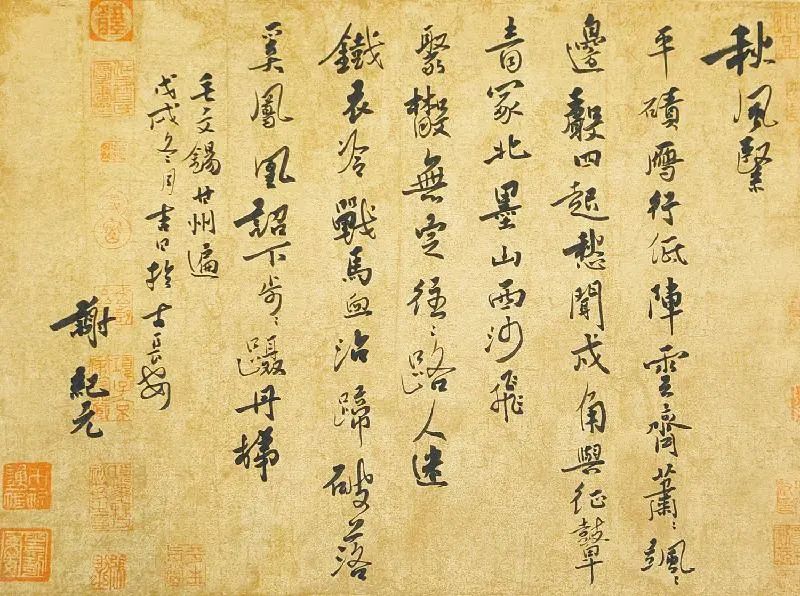 秋風緊
平磧鴈行低陣雲齊蕭〻颯〻
邊聲四起愁聞戍角與征鼙
青冢北墨山西沙飛
聚散無定往〻路人迷
鐵衣冷戰馬血沾蹄破落
奚鳳凰詔下步〻躡丹梯
毛文錫甘州遍
戊戌冬月書於長安
謝紀元